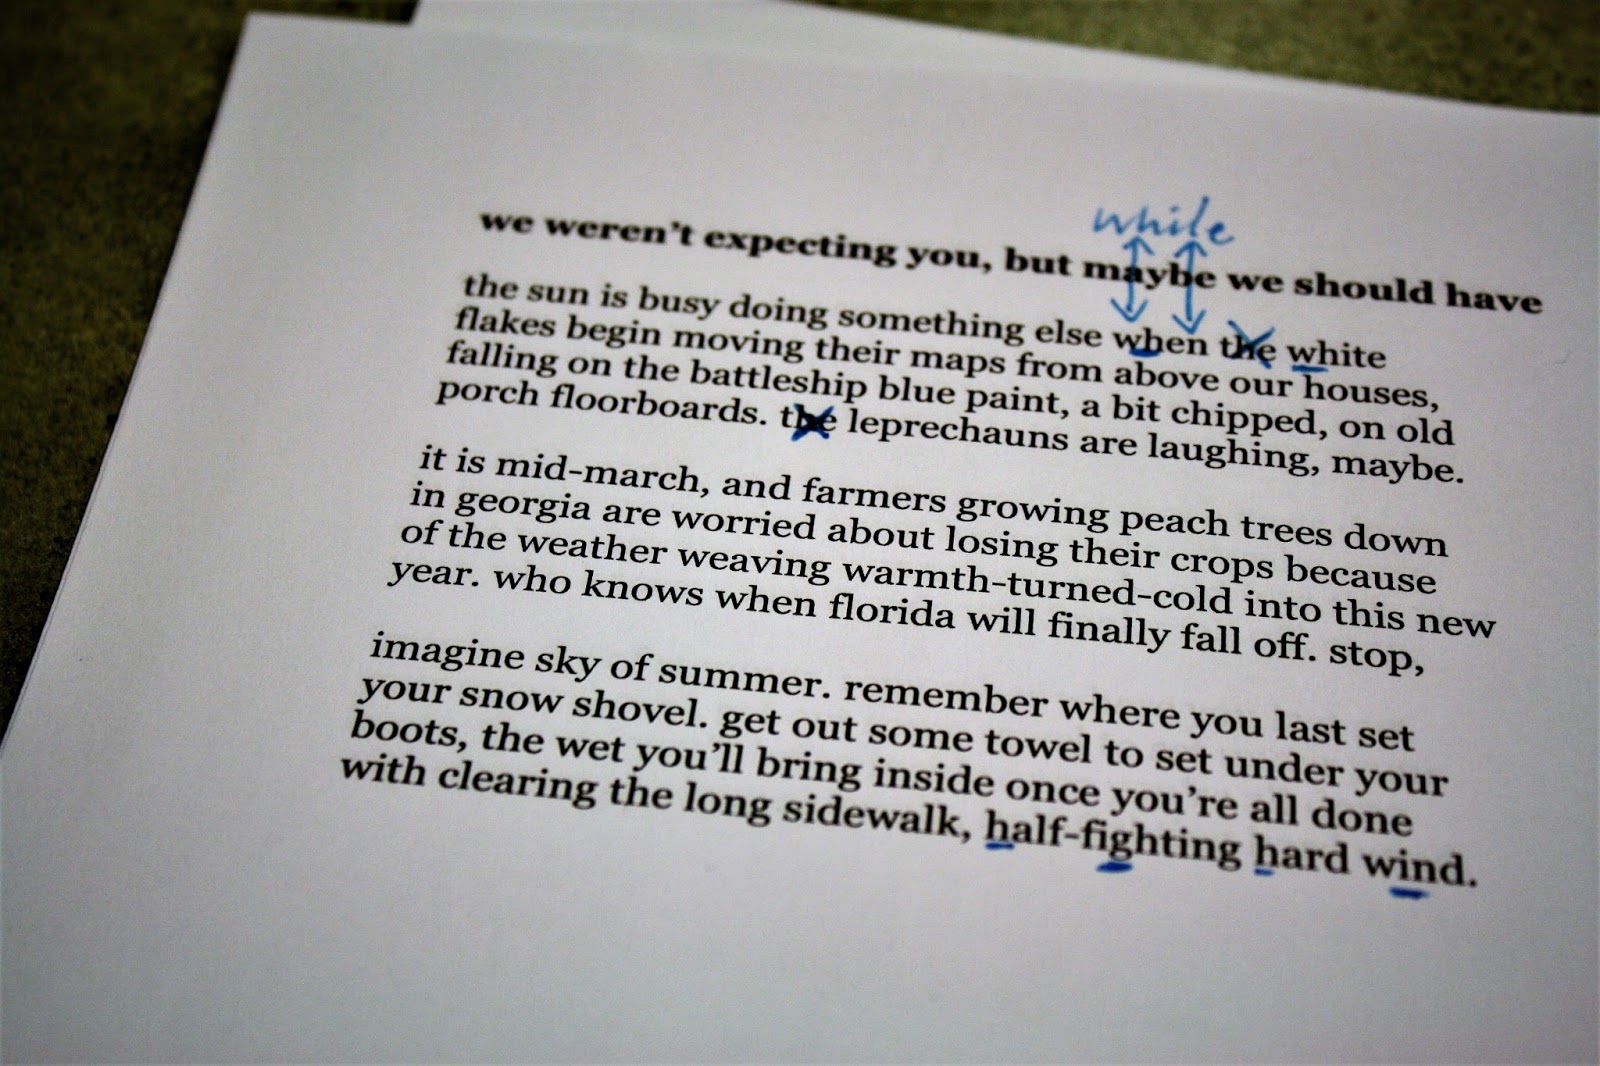 while
we weren't expecting you, but maybe we should have
the sun is busy doing something else when the white
flakes begin moving their maps from above our houses,
falling on the battleship blue paint, a bit chipped, on old
porch floorboards. the leprechauns are laughing, maybe.
it is mid-march, and farmers growing peach trees down
in georgia are worried about losing their crops because
of the weather weaving warmth-turned-cold into this new
year. who knows when florida will finally fall off. stop,
imagine sky of summer. remember where you last set
your snow shovel. get out some towel to set under your
boots, the wet you'll bring inside once you're all done
with clearing the long sidewalk, half-fighting hard wind.